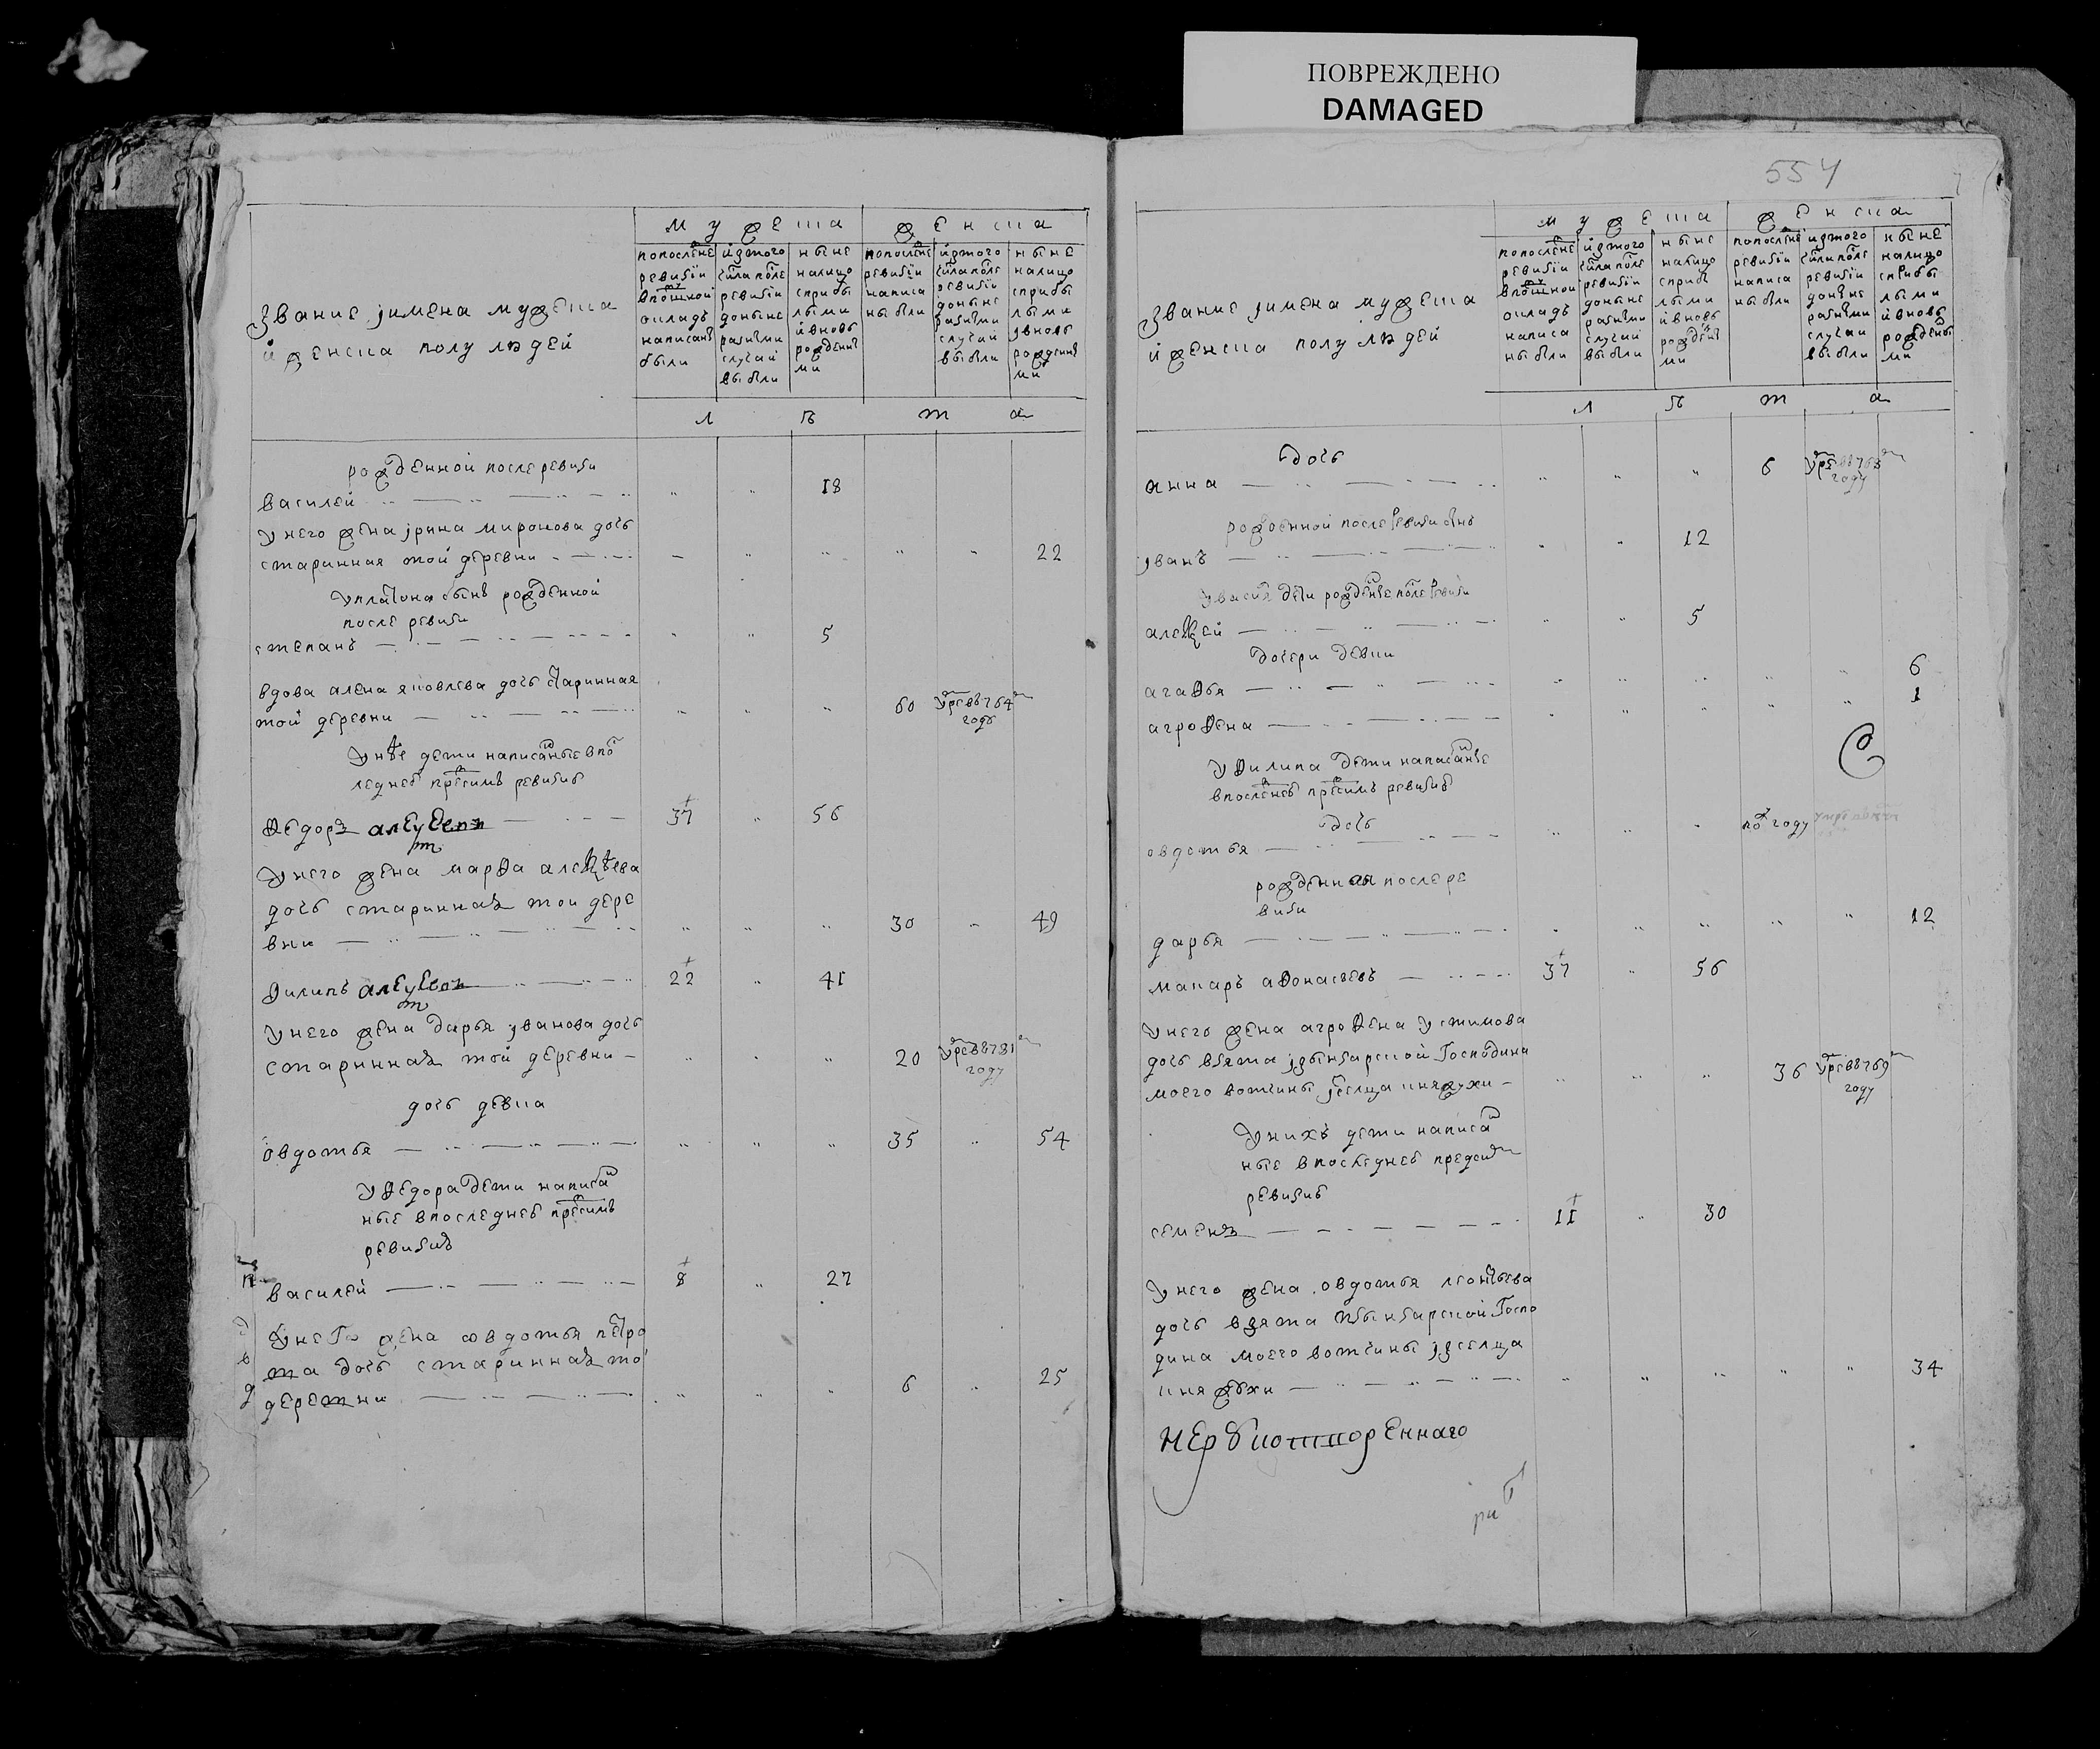 ПОВРЕЖДЕНО
DAMAGED
554
мужеска
женска
Звание јимена мужеска
й женска полу людей
попослѣдне ревизіи вподушной окладъ написаны были
йзтого числа после ревизіи доныне разными случаи выбыли
ныне налицо сприбылыми йвновь рожденными
попоследне ревизіи написаны были
йзтого числа после ревизіи доныне разными случаи выбыли
ныне налицо сприбылыми јвновь рожденными
л ѣ т а
рожденной после ревизи
василей 18
Унего жена јрина миронова дочь
старинная той деревни 22
Уплатона сынъ рожденной
после ревизи
степанъ 5
вдова алена яковлева дочь старинная
той деревни 60 умре в 1764 году
Унее дети написанные впо
следнеб пред симъ ревизиб
Федоръ 37 56
Унего жена марфа алексѣева
дочь старинная той дере
вни 30 49
Филипъ 22 41
Унего жена дарья јванова дочь
старинная той деревни 20 умре в 1781 году
дочь девка
овдотья 35 54
У Федора дети написан
ные впоследнеб пред симъ
ревизиѣ
василей 8 27
Унего жена овдотья петро
ва дочь старинная то
деревни 6 25
мужеска
женска
Звание јимена мужеска
й женска полу людей
попоследне ревизіи вподушной окладъ написаны были
йзтого числа после ревизіи доныне разными случаи выбыли
ныне налицо сприбылыми йвновь рожденными
попоследне ревизіи написаны были
изтого числа после ревизіи доныне разными случаи выбыли
ныне налицо сприбылыми йвновь рождеными
л ѣ т а
дочь
анна 6 умре в 1768 году
рожденной после ревизи сынъ
јванъ 12
Увасилья дети рожденые после ревизи
алексей 5
дочери девки
агафья 6
агрофена 1
У Филипа дети написаные
впоследнеб пред симъ ревизиб
дочь
овдотья по году
рожденная послере
визи
дарья 12
макаръ афонасьевъ 37 56
Унего жена агрофена Устимова
дочь взята јзынзарской Господина
моего вотчины јселца княжухи 36 умре в 1769 году
Унихъ дети написан
ные впоследнеб предсим
ревизиб
семенъ 11 30
Унего жена овдотья леонтьева
дочь взята Госпо
дина моего вотчины јзселца
княжухи 34